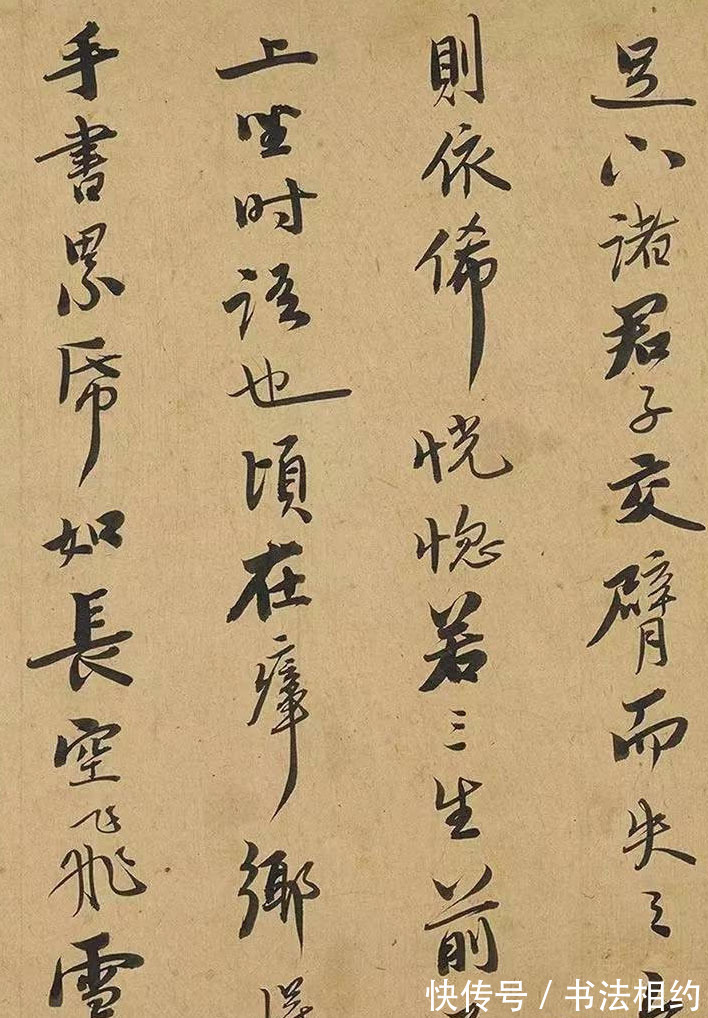 足下諸君子交臂而失之
則依俙恍惚若三生前
上坐时語也頃在瘴鄉得
手書累幅如長空飛雪
快传号 / 书法相约